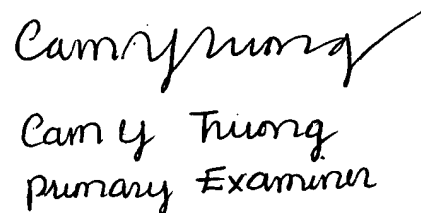 Cam Y Truong
Cam Y Truong
Primary Examiner